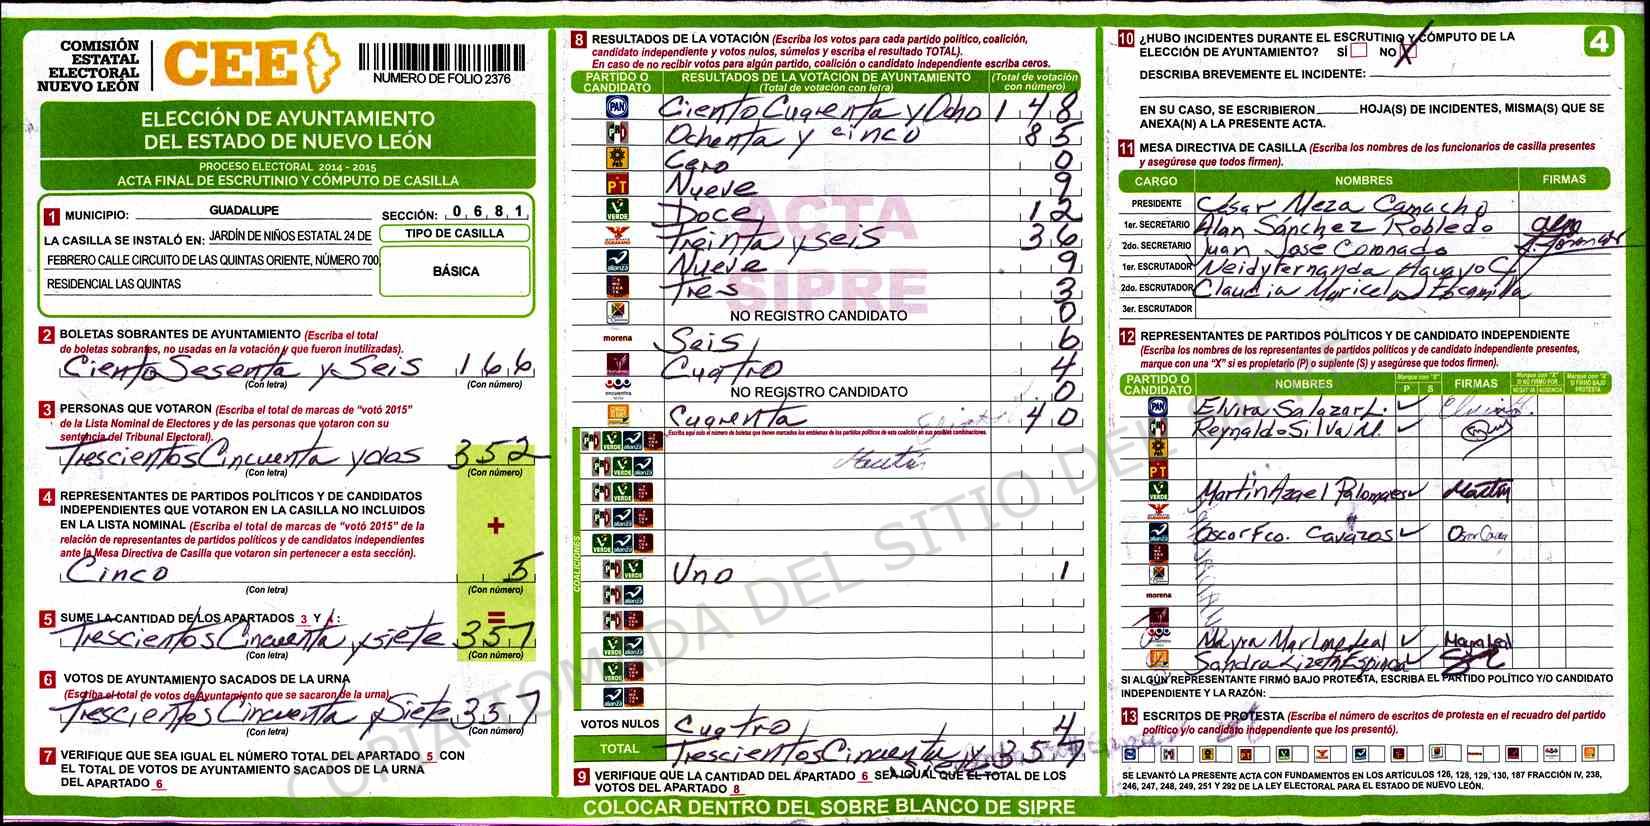 COMISIÓN
ESTATAL
ELECTORAL
NUEVO LEÓN
CEE
NUMERO DE FOLIO 2376
ELECCIÓN DE AYUNTAMIENTO
DEL ESTADO DE NUEVO LEÓN
PROCESO ELECTORAL 2014 - 2015
ACTA FINAL DE ESCRUTINIO Y CÓMPUTO DE CASILLA
1 MUNICIPIO: GUADALUPE SECCIÓN: 0 6 8 1
LA CASILLA SE INSTALÓ EN: JARDÍN DE NIÑOS ESTATAL 24 DE
FEBRERO CALLE CIRCUITO DE LAS QUINTAS ORIENTE, NÚMERO 700,
RESIDENCIAL LAS QUINTAS
TIPO DE CASILLA
BÁSICA
2 BOLETAS SOBRANTES DE AYUNTAMIENTO (Escriba el total
de boletas sobrantes, no usadas en la votación y que fueron inutilizadas).
Ciento Sesenta y Seis 166
(Con letra) (Con número)
3 PERSONAS QUE VOTARON (Escriba el total de marcas de "votó 2015"
de la Lista Nominal de Electores y de las personas que votaron con su
sentencia del Tribunal Electoral).
Trescientos Cincuenta y dos 352
(Con letra) (Con número)
4 REPRESENTANTES DE PARTIDOS POLÍTICOS Y DE CANDIDATOS
INDEPENDIENTES QUE VOTARON EN LA CASILLA NO INCLUIDOS
EN LA LISTA NOMINAL (Escriba el total de marcas de "votó 2015" de la
relación de representantes de partidos políticos y de candidatos independientes
ante la Mesa Directiva de Casilla que votaron sin pertenecer a esta sección).
+
Cinco 5
(Con letra) (Con número)
5 SUME LA CANTIDAD DE LOS APARTADOS 3 Y 4 :
=
Trescientos Cincuenta y siete 357
(Con letra) (Con número)
6 VOTOS DE AYUNTAMIENTO SACADOS DE LA URNA
(Escriba el total de votos de Ayuntamiento que se sacaron de la urna).
Trescientos Cincuenta y Siete 357
(Con letra) (Con número)
7 VERIFIQUE QUE SEA IGUAL EL NÚMERO TOTAL DEL APARTADO 5 CON
EL TOTAL DE VOTOS DE AYUNTAMIENTO SACADOS DE LA URNA
DEL APARTADO 6
8 RESULTADOS DE LA VOTACIÓN (Escriba los votos para cada partido político, coalición,
candidato independiente y votos nulos, súmelos y escriba el resultado TOTAL).
En caso de no recibir votos para algún partido, coalición o candidato independiente escriba ceros.
PARTIDO O CANDIDATO
RESULTADOS DE LA VOTACIÓN DE AYUNTAMIENTO
(Total de votación con letra)
(Total de votación con número)
PAN Ciento Cuarenta y Ocho 148
PRI Ochenta y cinco 85
Cero 0
PT Nueve 9
VERDE Doce 12
Treinta y seis 36
alianza Nueve 9
Tres 3
NO REGISTRO CANDIDATO 0
morena Seis 6
Cuatro 4
encuentro NO REGISTRO CANDIDATO 0
Cuarenta 40
Escriba aquí solo el número de boletas que tienen marcados los emblemas de los partidos políticos de esta coalición en sus posibles combinaciones.
Martin
COALICIONES
PRI VERDE Uno 1
VOTOS NULOS Cuatro 4
TOTAL Trescientos Cincuenta y siete 357
9 VERIFIQUE QUE LA CANTIDAD DEL APARTADO 6 SEA IGUAL QUE EL TOTAL DE LOS
VOTOS DEL APARTADO 8
ACTA
SIPRE
COPIA TOMADA DEL SITIO DEL SIPRE
COLOCAR DENTRO DEL SOBRE BLANCO DE SIPRE
4
10 ¿HUBO INCIDENTES DURANTE EL ESCRUTINIO Y CÓMPUTO DE LA
ELECCIÓN DE AYUNTAMIENTO? SÍ NO X
DESCRIBA BREVEMENTE EL INCIDENTE:
EN SU CASO, SE ESCRIBIERON HOJA(S) DE INCIDENTES, MISMA(S) QUE SE
ANEXA(N) A LA PRESENTE ACTA.
11 MESA DIRECTIVA DE CASILLA (Escriba los nombres de los funcionarios de casilla presentes
y asegúrese que todos firmen).
CARGO NOMBRES FIRMAS
PRESIDENTE César Meza Camacho
1er. SECRETARIO Alan Sánchez Robledo
2do. SECRETARIO Juan Jose Coronado
1er. ESCRUTADOR Neidy Fernanda Aguayo G
2do. ESCRUTADOR Claudia Maricela Escamilla
3er. ESCRUTADOR
12 REPRESENTANTES DE PARTIDOS POLÍTICOS Y DE CANDIDATO INDEPENDIENTE
(Escriba los nombres de los representantes de partidos políticos y de candidato independiente presentes,
marque con una "X" si es propietario (P) o suplente (S) y asegúrese que todos firmen).
PARTIDO O CANDIDATO NOMBRES P S FIRMAS
PAN Elvira Salazar L. ✓
PRI Reynaldo Silva M. ✓
PT
VERDE Martin Azael Palomares ✓ Martin
alianza Oscar Fco. Cavazos ✓
morena
Mayra Marlene Leal ✓ Mayra Leal
Sandra Lizeth Espinoza ✓
SI ALGÚN REPRESENTANTE FIRMÓ BAJO PROTESTA, ESCRIBA EL PARTIDO POLÍTICO Y/O CANDIDATO
INDEPENDIENTE Y LA RAZÓN:
13 ESCRITOS DE PROTESTA (Escriba el número de escritos de protesta en el recuadro del partido
político y/o candidato independiente que los presentó).
SE LEVANTÓ LA PRESENTE ACTA CON FUNDAMENTOS EN LOS ARTÍCULOS 126, 128, 129, 130, 187 FRACCIÓN IV, 238,
246, 247, 248, 249, 251 Y 292 DE LA LEY ELECTORAL PARA EL ESTADO DE NUEVO LEÓN.